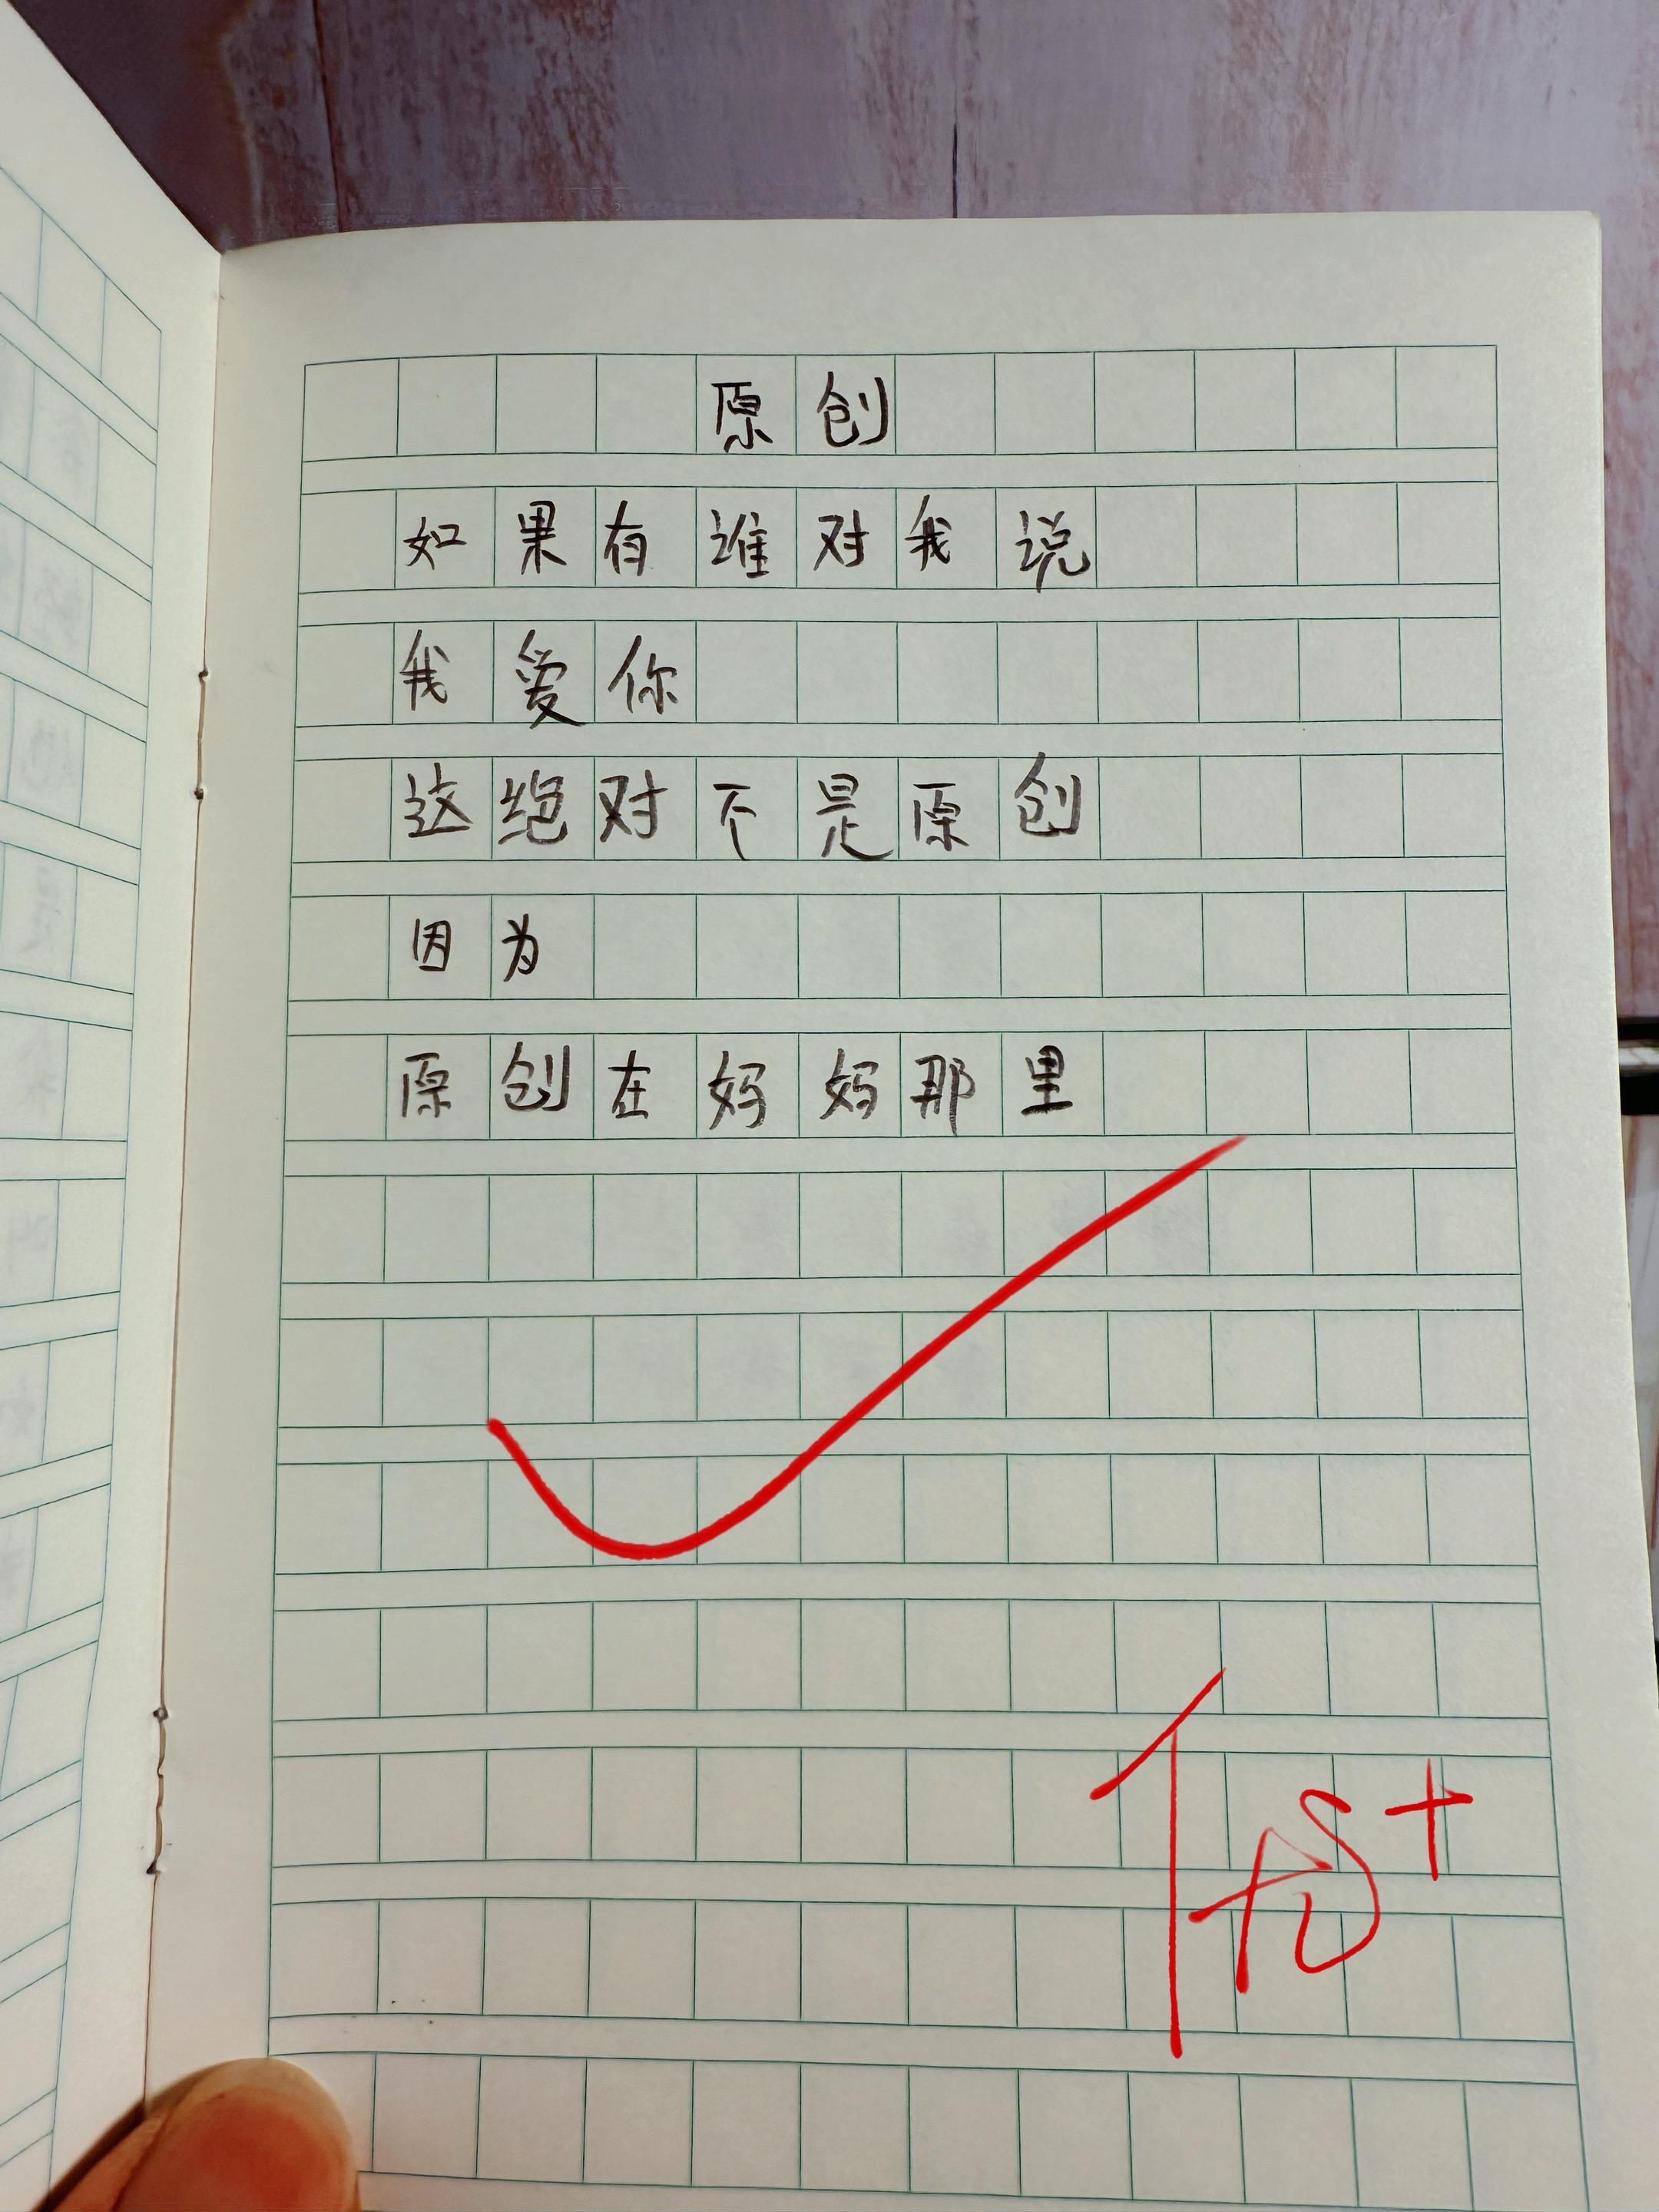 原创
如果有谁对我说
我爱你
这绝对不是原创
因为
原创在妈妈那里
优+